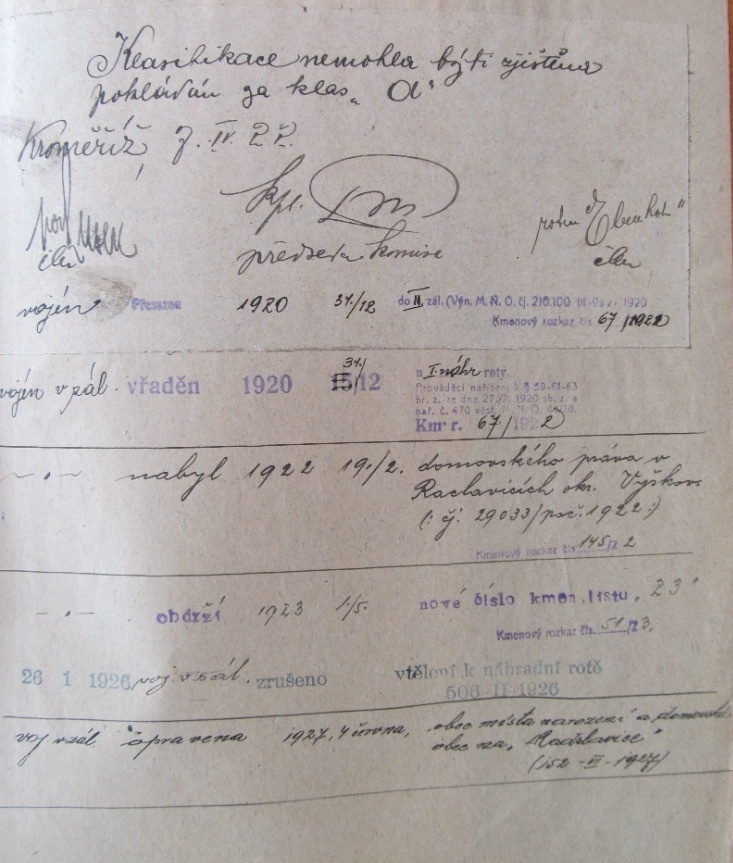 Klasifikace nemohla býti zjištěna
pokládán za klas. "A"
Kroměříž, 7. IV. 22.
kpt.
předseda komise
člen
člen
vojín Přesazen 1920 31/12 do II. zál. (Výn. M. N. O. čj. 210.100 III-9a z r. 1920
Kmenový rozkaz čís 67/1922
vojín v zál. vřaděn 1920 31/ 15/12 u I. náhr roty
Prováděcí nařízení k § 59-61-63
br. z. ze dne 27./7. 1920 sb. z. a
nař. č. 470 věst. M. N. O. 46/20.
Km. r. 67/1922
- „ - nabyl 1922 19./2. domovského práva v
Raclavicích okr. Vyškov
(: čj. 29033/poč. 1922 :)
Kmenový rozkaz čís 145/22
- „ - obdrží 1923 1./5. nové číslo kmen. listu „23"
Kmenový rozkaz čís. 51/23.
26 1 1926 voj. v zál. zrušeno vtělení k náhradní rotě
506-II-1926
voj v zál. opravena 1927, 4 února, obec místa narození a domovská
obec na „Radslavice"
(152-II-1927)